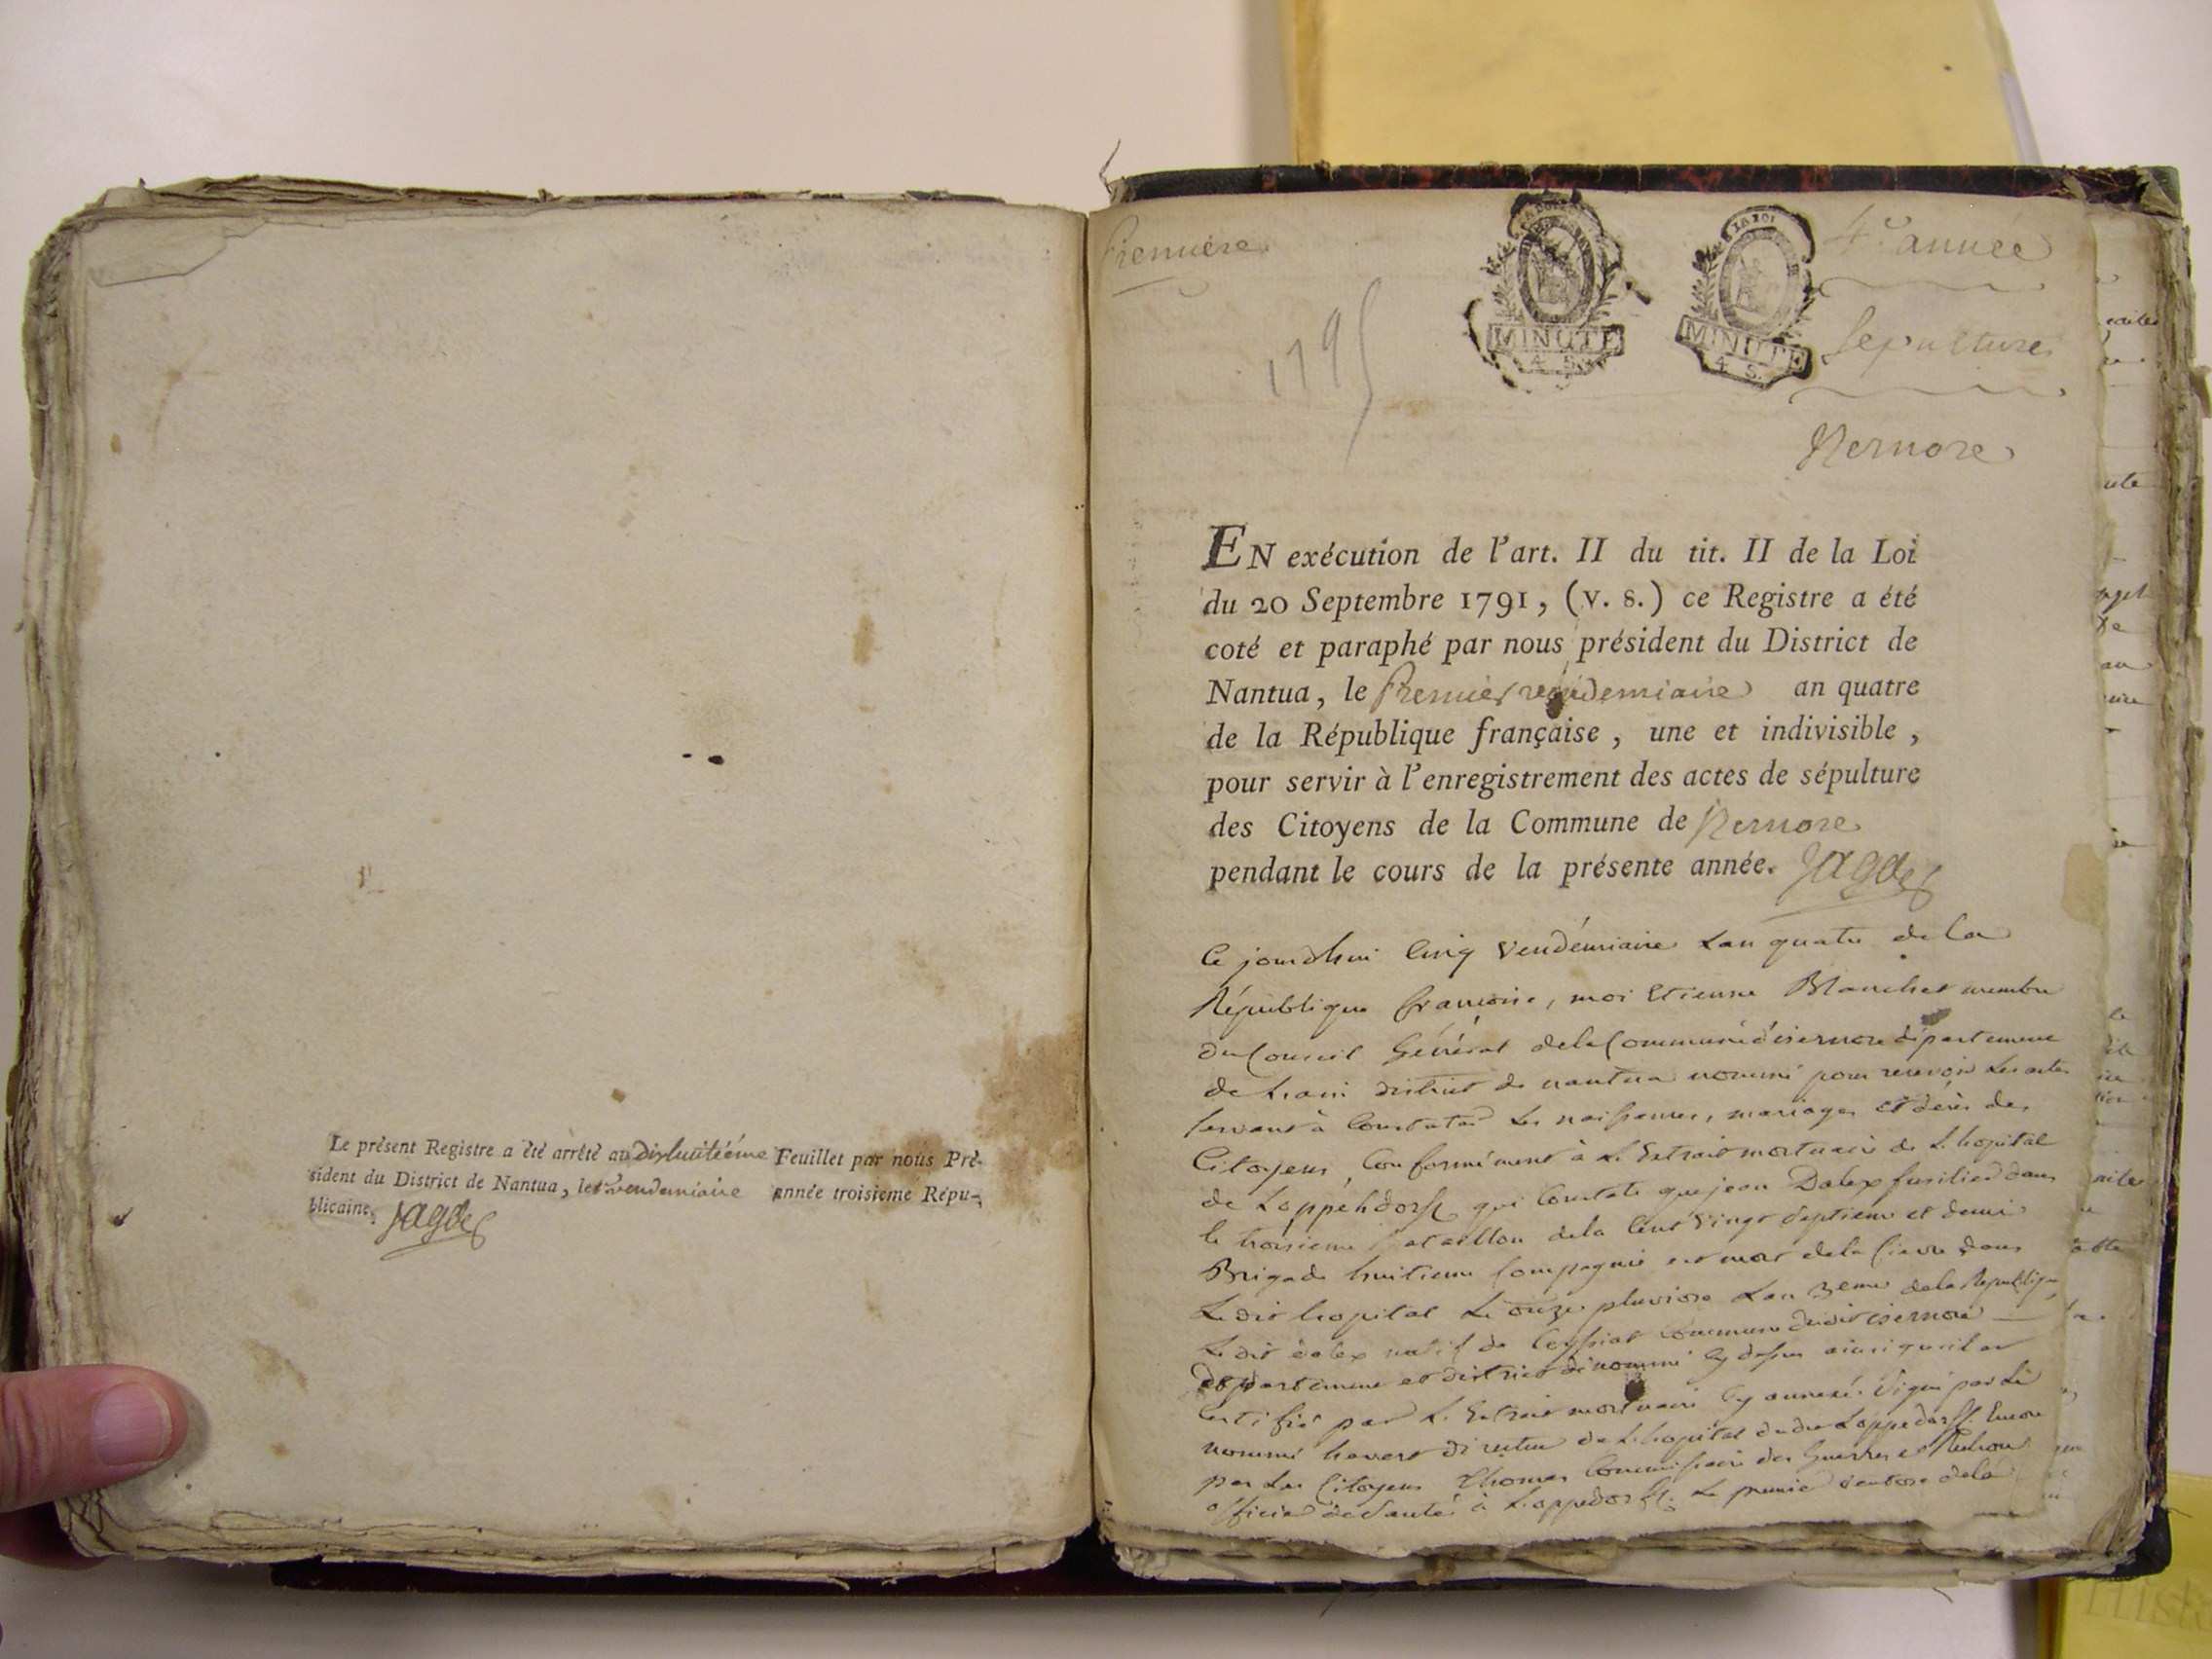 Le présent Registre a été arrêté au Dixhuitiéme Feuillet par nous Pré-
sident du District de Nantua, le vendemiaire année troisieme Répu-
blicaine. Jagde
Premiere
4e année
1795
LA LOI
MINUTE
4 S.
MINUTE
4 S.
Sepultures
Yzernore
EN exécution de l'art. II du tit. II de la Loi
du 20 Septembre 1791, (v. s.) ce Registre a été
coté et paraphé par nous président du District de
Nantua, le Premier vendemiaire an quatre
de la République française, une et indivisible,
pour servir à l'enregistrement des actes de sépulture
des Citoyens de la Commune de Yzernore
pendant le cours de la présente année. Jagde
Ce jourdhui Cinq Vendémiaire Lan quatre de la
République francoise, moi Etienne Blanchet membre
du Conseil Général dela Commune d'isernore département
de Lain district de nantua nommé pour recevoir Les actes
servant à Constater Les naissances, mariages et décès des
Citoyens, Conformément à L'Extrait mortuaire de L'hopital
de Loppehdorff qui Constate que jean Dalex fusilier dans
le troisieme bataillon dela Cent Vingt Septieme et demi
Brigade huitieme Compagnie est mort dela fievre dans
Ledit hopital Le onze pluviose Lan 3eme dela Republique
Ledit dalex natif de Ceyssiat Commune dudit isernore
département et district dénommé Cy dessus ainsi quil est
Certifié par L'Extrait mortuaire Cy annexé. Signé par Le
nommé havert directeur de L'hopital dudit Loppedorff. Encore
par Les Citoyens Thomas Commissaire des Guerres et
officier de Santé à Loppedorff. Le premier ventose dela